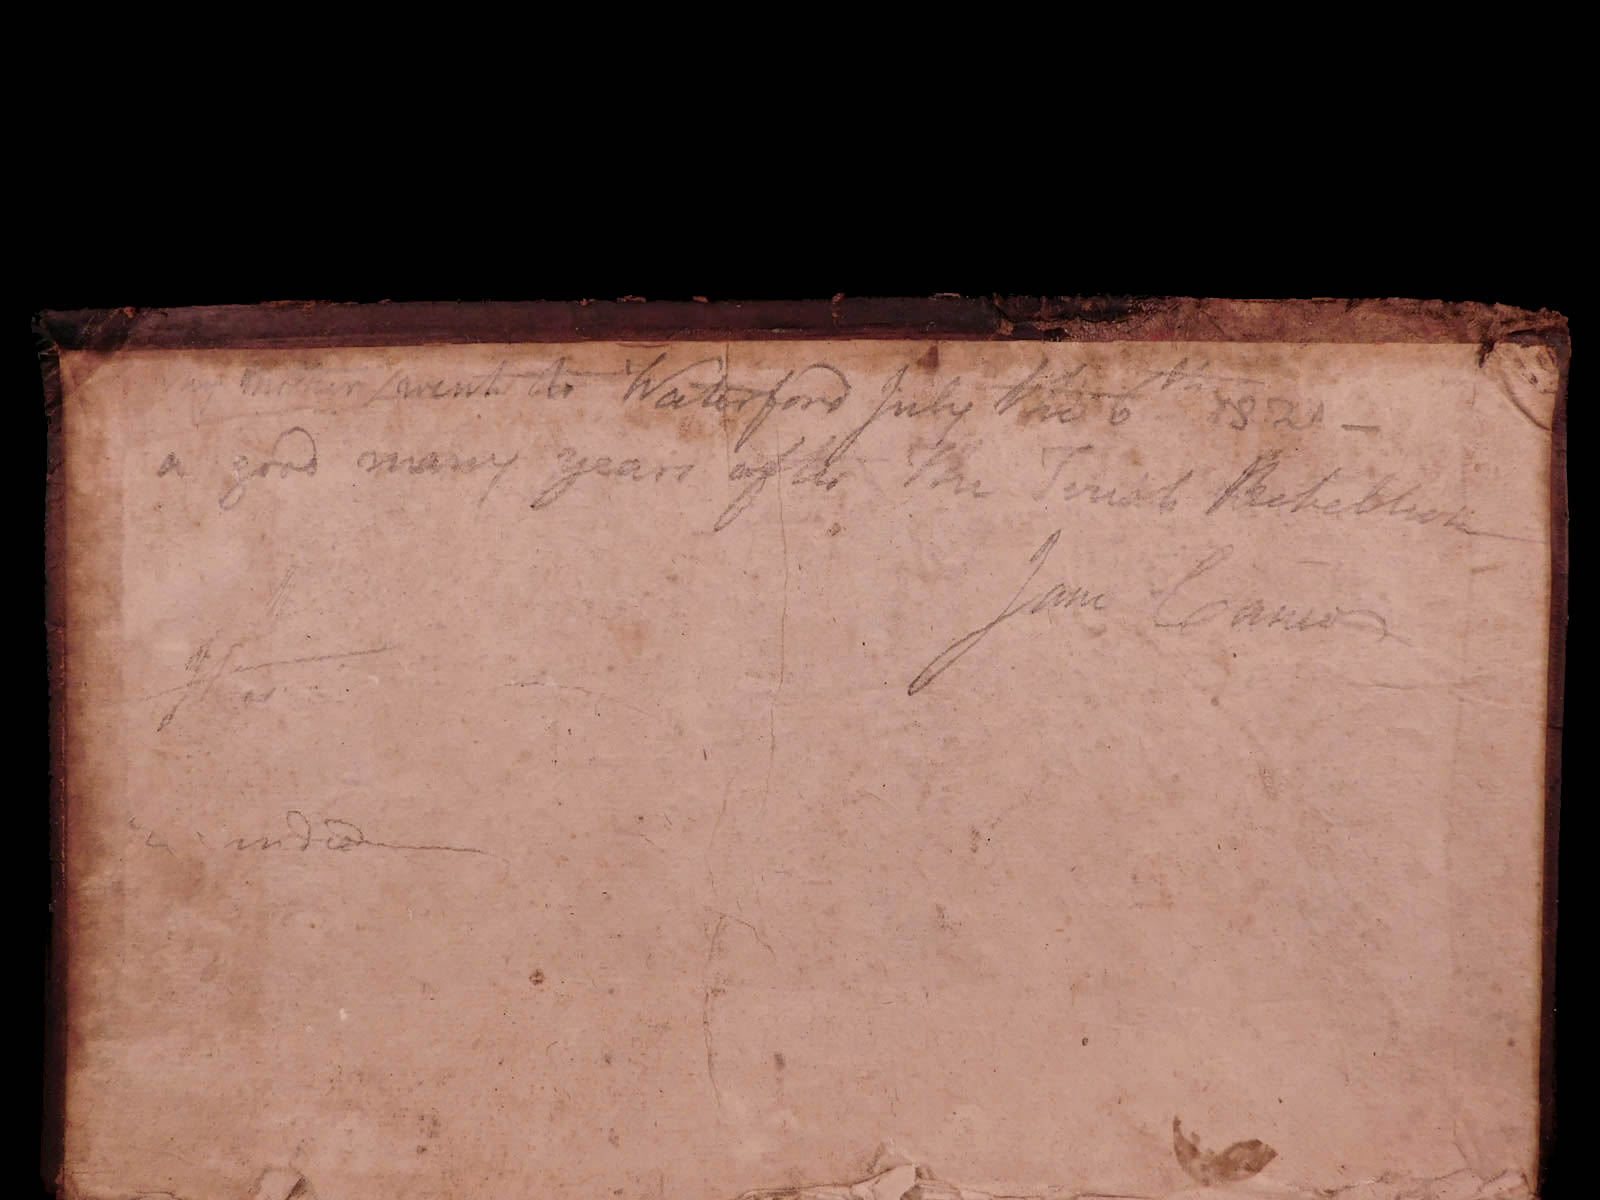 my mother went to Waterford July the 6th 182
a good many years after the Irish Rebellion
Jane